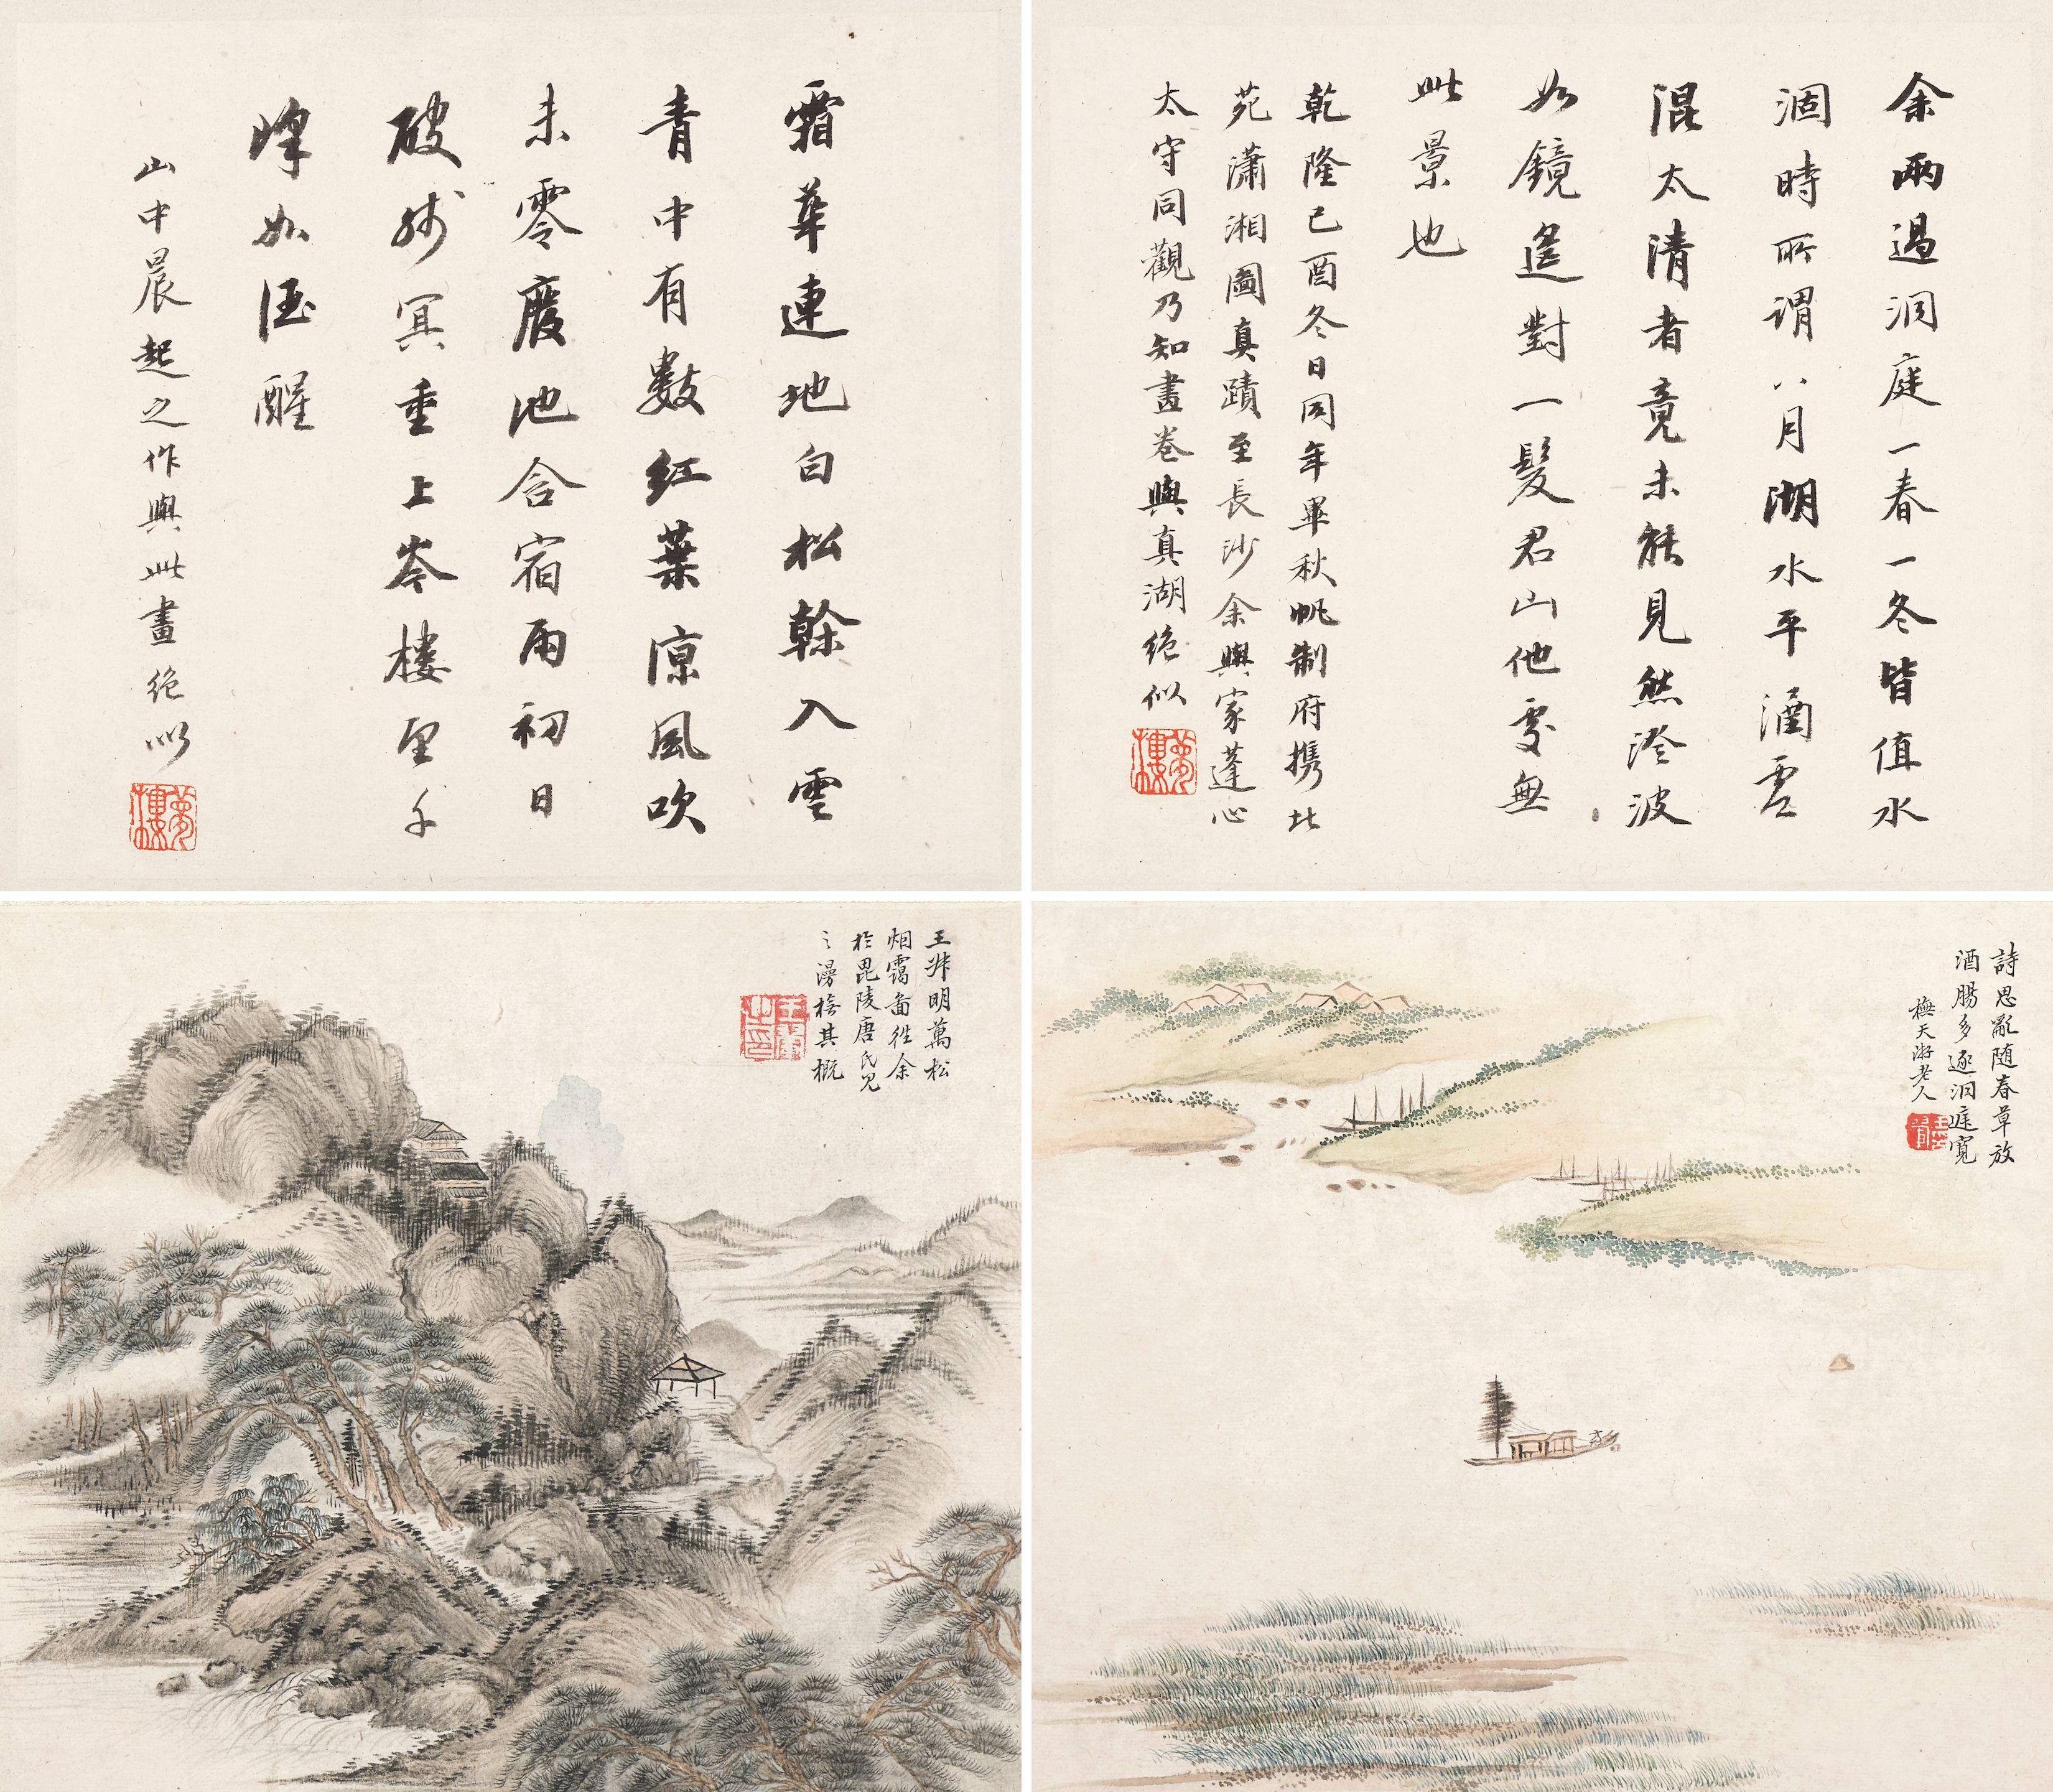 余兩過洞庭一春一冬皆值水
涸時所謂八月湖水平涵虛
混太清者竟未能見然澄波
如鏡遙對一髮君山他處無
此景也
乾隆己酉冬日同年畢秋帆制府携北
苑瀟湘圖真蹟至長沙余與家蓬心
太守同觀乃知畫卷與真湖絕似
霜華連地白松榦入雲
青中有數紅葉涼風吹
未零廢池含宿雨初日
破殘冥重上岑樓望千
峰如酒醒
山中晨起之作與此畫絕似
詩思亂随春草放
酒腸多逐洞庭寬
橅天游老人
王叔明萬松
烟靄啚往余
於毘陵唐氏見
之漫橅其概
夢樓
夢樓